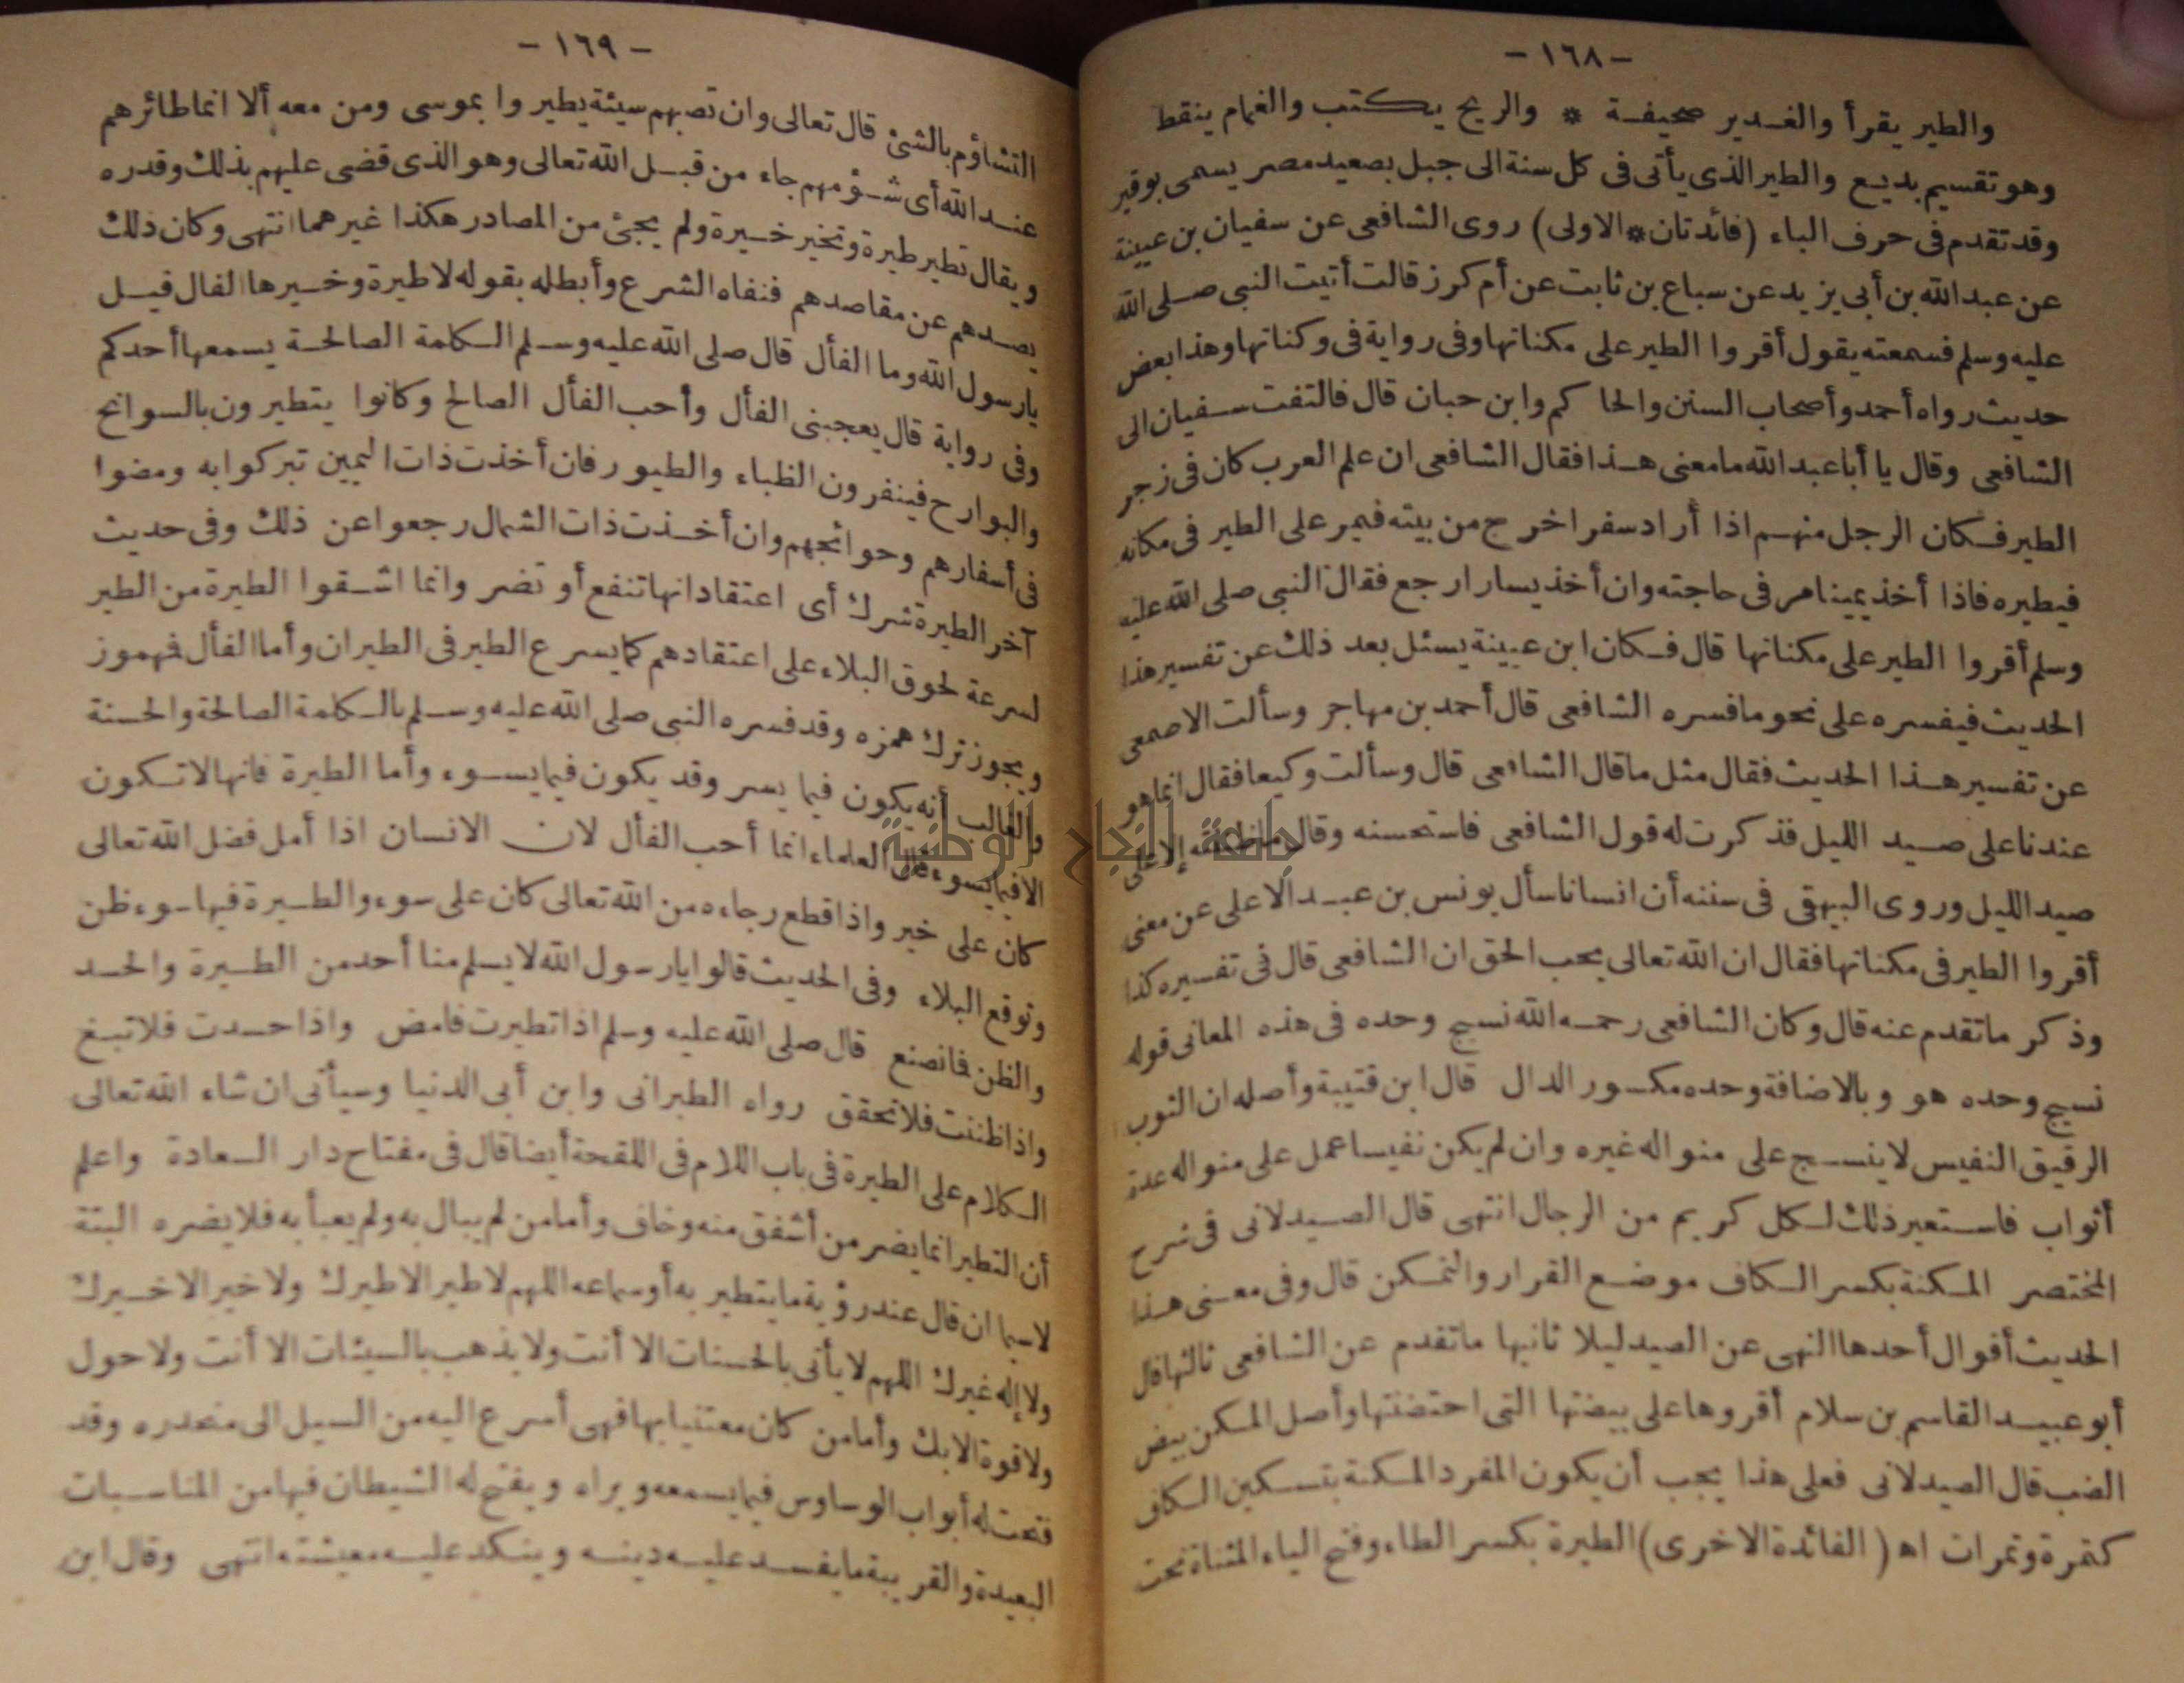 - ١٦٨ -
والطير يقرأ والغدير صحيفة * والريح يكتب والغمام ينقط
وهو تقسيم بديع والطير الذى يأتى فى كل سنة الى جبل بصعيد مصر يسمى بوقير
وقد تقدم فى حرف الباء (فائدتان * الاولى) روى الشافعى عن سفيان بن عيينة
عن عبد الله بن أبى يزيد عن سباع بن ثابت عن أم كرز قالت أتيت النبى صلى الله
عليه وسلم فسمعته يقول أقروا الطير على مكناتها وفى رواية فى وكناتها وهذا بعض
حديث رواه أحمد وأصحاب السنن والحاكم وابن حبان قال فالتفت سفيان الى
الشافعى وقال يا أبا عبد الله ما معنى هذا فقال الشافعى ان علم العرب كان فى زجر
الطير فكان الرجل منهم اذا أراد سفرا خرج من بيته فيمر على الطير فى مكانه
فيطيره فاذا أخذ يمينا مر فى حاجته وان أخذ يسارا رجع فقال النبى صلى الله عليه
وسلم أقروا الطير على مكناتها قال فكان ابن عيينة يسئل بعد ذلك عن تفسير هذا
الحديث فيفسره على نحو ما فسره الشافعى قال أحمد بن مهاجر وسألت الاصمعى
عن تفسير هذا الحديث فقال مثل ما قال الشافعى قال وسألت وكيعا فقال انما هو
عندنا على صيد الليل فذكرت له قول الشافعى فاستحسنه وقال ما ظننته إلا على
صيد الليل وروى البيهقى فى سننه أن انسانا سأل يونس بن عبد الاعلى عن معنى
أقروا الطير فى مكناتها فقال ان الله تعالى يحب الحق ان الشافعى قال فى تفسيره كذا
وذكر ما تقدم عنه قال وكان الشافعى رحمه الله نسيج وحده فى هذه المعانى قوله
نسيج وحده هو وبالاضافة وحده مكسور الدال قال ابن قتيبة وأصله ان الثوب
الرقيق النفيس لا ينسج على منواله غيره وان لم يكن نفيسا عمل على منواله عدة
أثواب فاستعير ذلك لكل كريم من الرجال انتهى قال الصيدلانى فى شرح
المختصر المكنة بكسر الكاف موضع القرار والتمكن قال وفى معنى هذا
الحديث أقوال أحدها النهى عن الصيد ليلا ثانيها ما تقدم عن الشافعى ثالثها قال
أبو عبيد القاسم بن سلام أقروها على بيضتها التى احتضنتها وأصل المكن بيض
الضب قال الصيدلانى فعلى هذا يجب أن يكون المفرد المكنة بتسكين الكاف
كتمرة وتمرات اه (الفائدة الاخرى) الطيرة بكسر الطاء وفتح الياء المثناة تحت
- ١٦٩ -
التشاؤم بالشئ قال تعالى وان تصبهم سيئة يطيروا بموسى ومن معه ألا انما طائرهم
عند الله أى شؤمهم جاء من قبل الله تعالى وهو الذى قضى عليهم بذلك وقدره
ويقال تطير طيرة وتخير خيرة ولم يجئ من المصادر هكذا غيرهما انتهى وكان ذلك
يصدهم عن مقاصدهم فنفاه الشرع وأبطله بقوله لا طيرة وخيرها الفال قيل
يارسول الله وما الفأل قال صلى الله عليه وسلم الكلمة الصالحة يسمعها أحدكم
وفى رواية قال يعجبنى الفأل وأحب الفأل الصالح وكانوا يتطيرون بالسوانح
والبوارح فينفرون الظباء والطيور فان أخذت ذات اليمين تبركوا به ومضوا
فى أسفارهم وحوائجهم وان أخذت ذات الشمال رجعوا عن ذلك وفى حديث
آخر الطيرة شرك أى اعتقاد انها تنفع أو تضر وانما اشتقوا الطيرة من الطير
لسرعة لحوق البلاء على اعتقادهم كما يسرع الطير فى الطيران وأما الفأل فمهموز
ويجوز ترك همزه وقد فسره النبى صلى الله عليه وسلم بالكلمة الصالحة والحسنة
والغالب أنه يكون فيما يسر وقد يكون فيما يسوء وأما الطيرة فانها لا تكون
الا فيما يسوء قال العلماء انما أحب الفأل لان الانسان اذا أمل فضل الله تعالى
كان على خير واذا قطع رجاءه من الله تعالى كان على سوء والطيرة فيها سوء ظن
وتوقع البلاء وفى الحديث قالوا يارسول الله لا يسلم منا أحد من الطيرة والحسد
والظن فما نصنع قال صلى الله عليه وسلم اذا تطيرت فامض واذا حسدت فلا تبغ
واذا ظننت فلا تحقق رواه الطبرانى وابن أبى الدنيا وسيأتى ان شاء الله تعالى
الكلام على الطيرة فى باب اللام فى اللقحة أيضا قال فى مفتاح دار السعادة واعلم
أن التطير انما يضر من أشفق منه وخاف وأما من لم يبال به ولم يعبأ به فلا يضره البتة
لاسيما ان قال عند رؤية ما يتطير به أو سماعه اللهم لا طير الا طيرك ولا خير الا خيرك
ولا إله غيرك اللهم لا يأتى بالحسنات الا أنت ولا يذهب بالسيئات الا أنت ولا حول
ولا قوة الا بك وأما من كان معتنيا بها فهى أسرع اليه من السيل الى منحدره وقد
فتحت له أبواب الوساوس فيما يسمعه ويراه ويفتح له الشيطان فيها من المناسبات
البعيدة والقريبة ما يفسد عليه دينه وينكد عليه معيشته انتهى وقال ابن
جامعة النجاح الوطنية